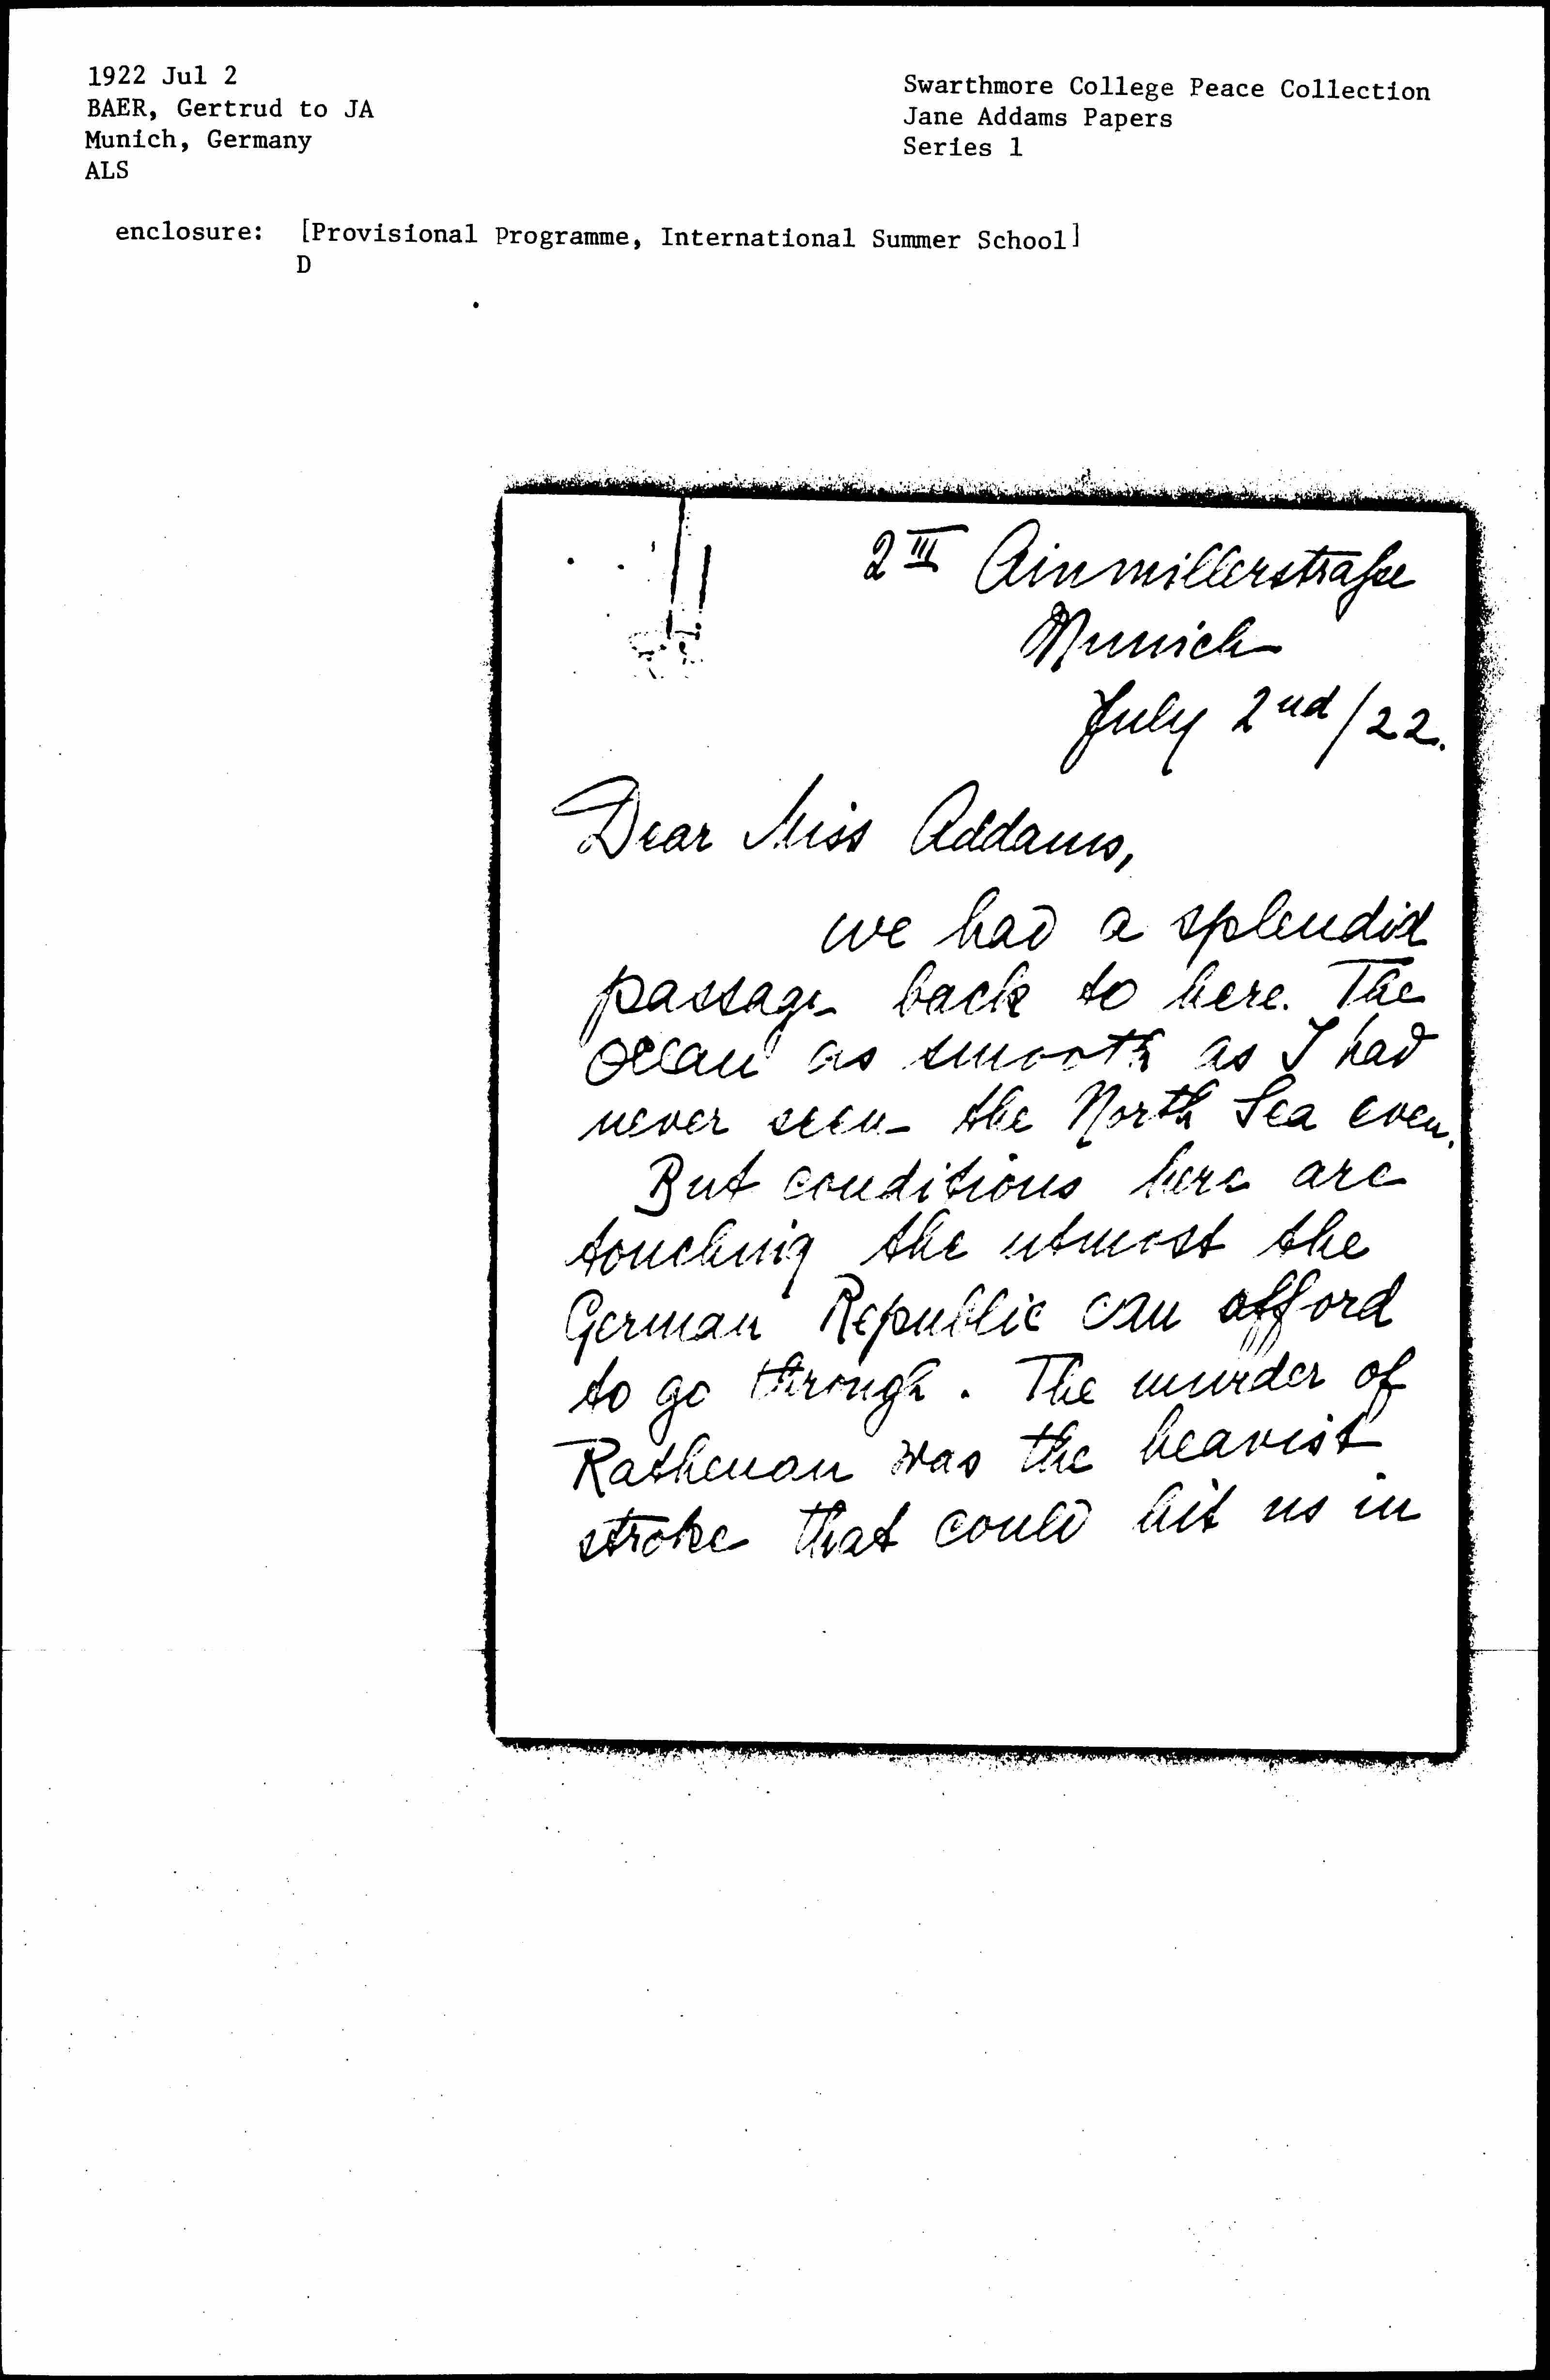 1922 Jul 2
BAER, Gertrud to JA
Munich, Germany
ALS
Swarthmore College Peace Collection
Jane Addams Papers
Series 1
enclosure: [Provisional Programme, International Summer School]
D
2 III Ainmillerstraße
Munich
July 2nd/22.
Dear Miss Addams,
we had a splendid
passage back to here. The
ocean as smooth as I had
never seen the North Sea even.
But conditions here are
touching the utmost the
German Republic can afford
to go through. The murder of
Rathenau was the heavist
stroke that could hit us in